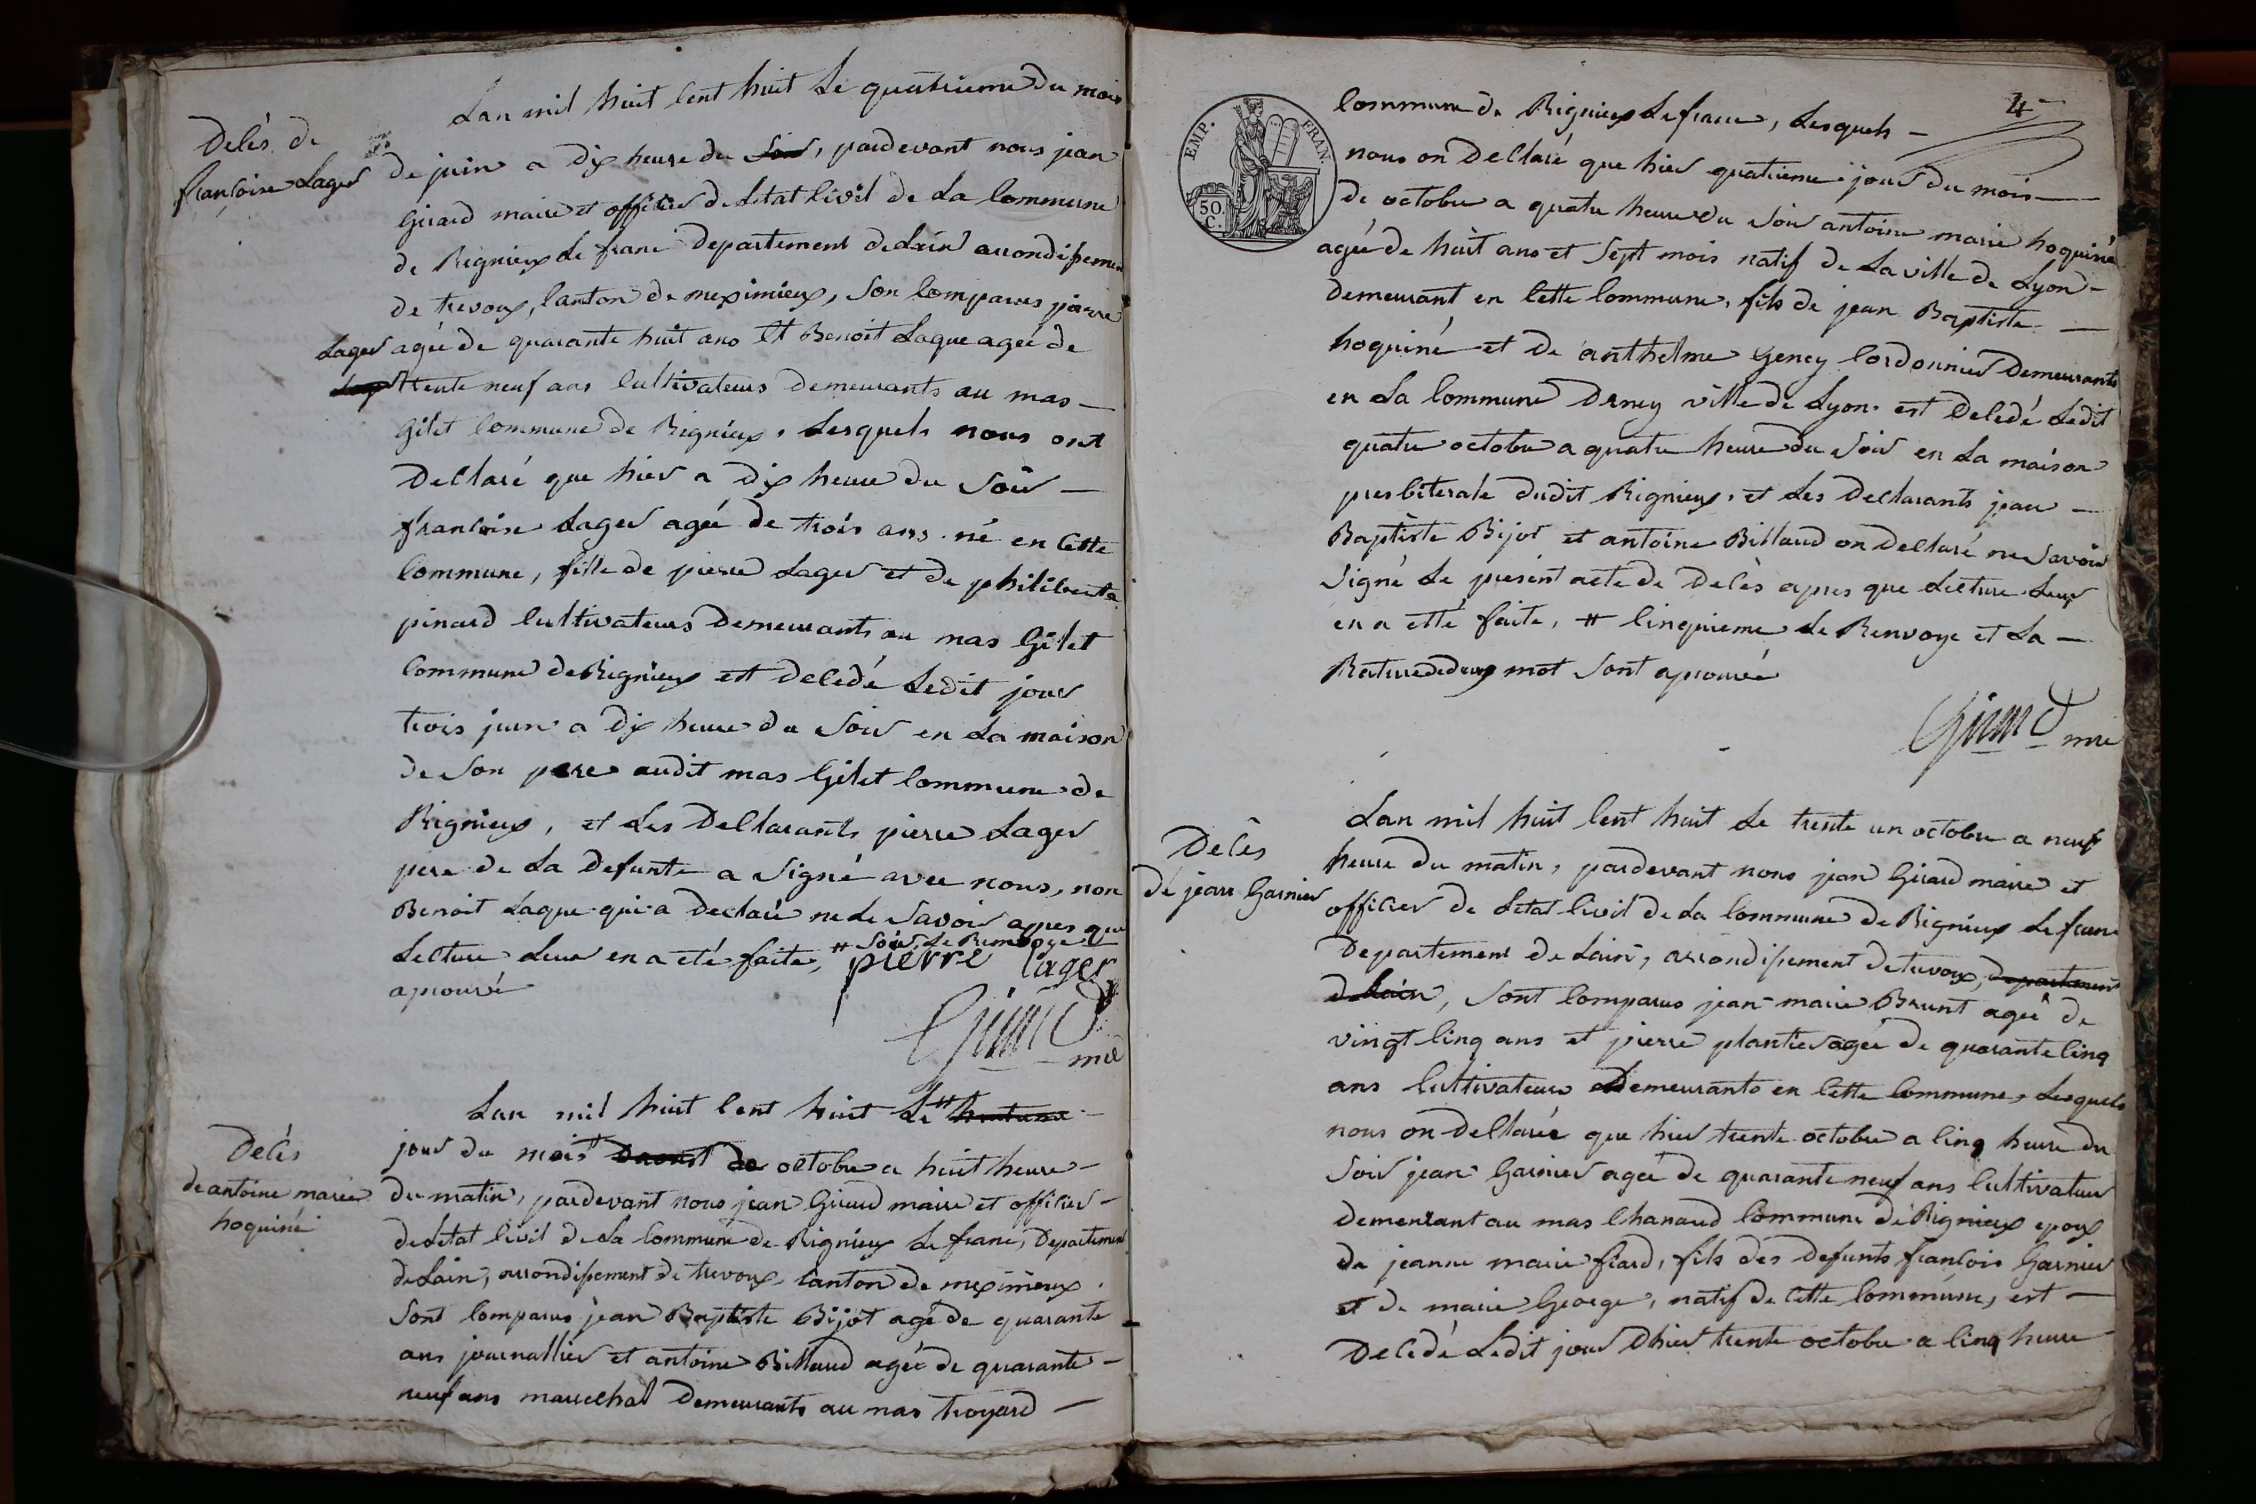 Decès de
francoise Lager
Lan mil huit Cent huit Le quatrieme du mois
de juin a dix heure du Soir, pardevant nous jean
Girard maire et officier de Letat Civil de La Commune
de Rignieux Le franc departement de Lain arondissement
de trevoux, Canton de meximieux, Son Comparus pierre
Lager agée de quarante huit ans Et Benoit Laque agée de
trente neuf ans Cultivateurs demeurants au mas
Gilet Commune de Rignieux, Lesquels nous ont
Declaré que hier a dix heure du Soir
francoise Lager agée de trois ans né en Cette
Commune, fille de pierre Lager et de philiberte
pinard Cultivateurs demeurants au mas Gilet
Commune de Rignieux est decedé Ledit jour
trois juin a dix heure du Soir en La maison
de Son pere audit mas Gilet Commune de
Rignieux, et Les Declarants pierre Lager
pere de La defunte a Signé avec nous, non
Benoit Laque qui a declaré ne Le Savoir apres que
Lecture Leur en a eté faite, # Soir Le Renvoye
aprouvé
pierre lager
Girard mre
Decès
de antoine marie
hoquiné
Lan mil huit Cent huit Le #
jour du mois daoust de octobre a huit heure
du matin, pardevant nous jean Girard maire et officier
de Letat Civil de La Commune de Rignieux Le franc, Departement
de Lain, arrondissement de trevoux Canton de meximieux
Sont Comparus jean Baptiste Bijot agé de quarante
ans journallier et antoine Billaud agée de quarante
neuf ans marechal demeurants au mas troyard
4
EMP. FRAN.
50 C.
Commune de Rignieux Le franc, Lesquels
nous on Declaré que hier quatrieme jour du mois
de octobre a quatre heure du Soir antoine marie hoquiné
agée de huit ans et Sept mois natif de La ville de Lyon
demeurant en Cette Commune, fils de jean Baptiste
hoquiné et de anthelme Gency Cordonnier demeurants
en La Commune Deney ville de Lyon est decedé Ledit
quatre octobre a quatre heure du Soir en La maison
presbiterale dudit Rignieux, et Les declarants jean
Baptiste Bijot et antoine Billaud on declaré ne Savoir
Signé Le present acte de decès apres que Lecture Leur
en a etté faite, # Cinquieme Le Renvoye et La
Rature de deux mot Sont aprouvé
Girard mre
Decès
de jean Garnier
Lan mil huit Cent huit Le trente un octobre a neuf
heure du matin, pardevant nous jean Girard maire et
officier de Letat Civil de La Commune de Rignieux Le franc
Departement de Lain, arrondissement de trevoux, departement
de Lain, Sont Comparus jean marie Brunt agée de
vingt Cinq ans et pierre plantier agée de quarante Cinq
ans Cultivateurs demeurants en Cette Commune, Lesquels
nous on declarée que hier trente octobre a Cinq heure du
Soir jean Garnier agée de quarante neuf ans Cultivateur
demeurant au mas Chanaud Commune de Rignieux epoux
de jeanne marie fiard, fils des defunts francois Garnier
et de marie George, natif de Cette Commune, est
Decedé Ledit jour dhier trente octobre a Cinq heure